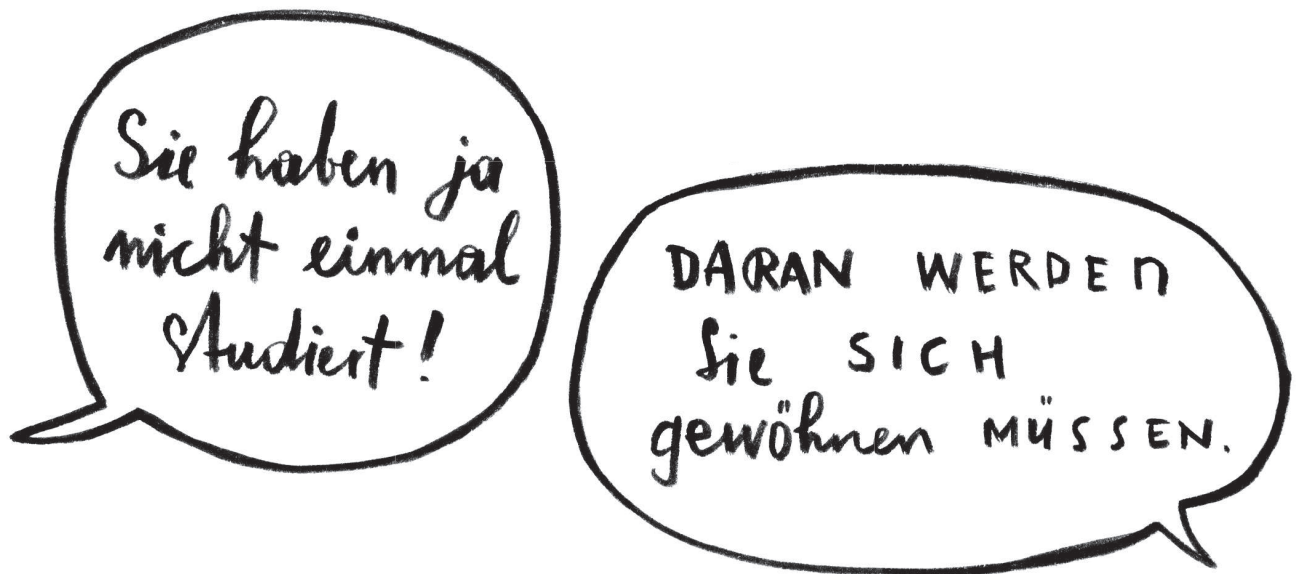 Sie haben ja
nicht einmal
studiert!
DARAN WERDEN
Sie SICH
gewöhnen MÜSSEN.